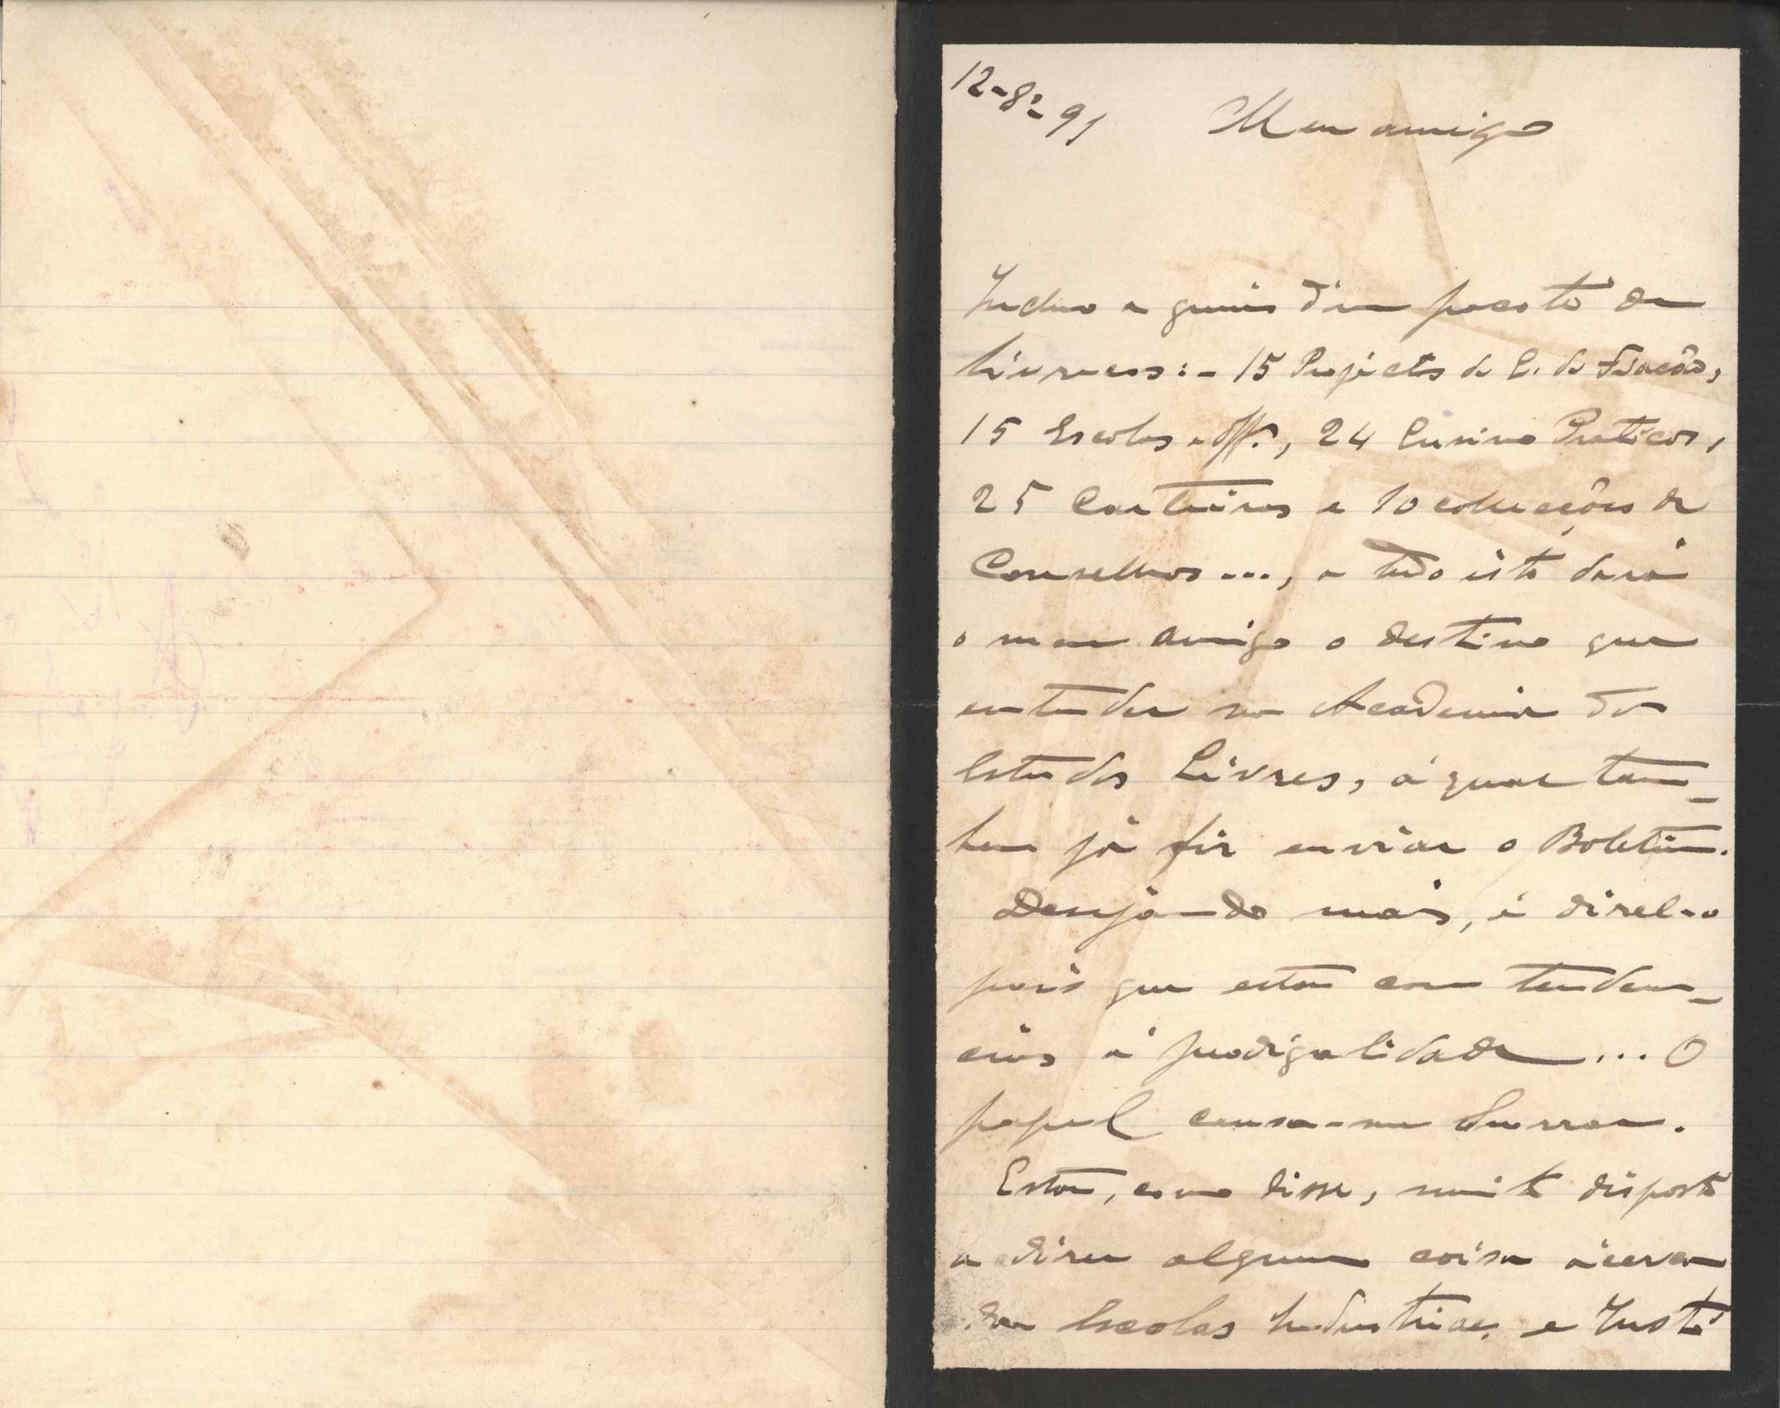 12-8º-91
Meu amigo
Incluo a guia d'um pacote de
livros: - 15 Projectos de E. de Fiação,
15 Escolas e Off., 24 Ensino Praticos,
25 Carteiras e 10 collecções de
Conselhos ..., a tudo isto dará
o meu amigo o destino que
entender na Academia dos
Estudos Livres, á qual tam-
bem já fiz enviar o Boletim.
Desejando mais, é dizel-o
pois que estou com tenden-
cias á prodigalidade ... O
papel causa-me
Estou, como disse, muito disposto
a dizer alguma coisa ácerca
das Escolas Industriaes e